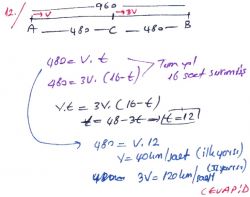 12/
960
→V →3V
A —480— C —480— B
480 = V.t
480 = 3V.(16-t)
Tüm yol
16 saat sürmüş
V.t = 3V.(16-t)
t = 48-3t → t=12
480 = V.12
V = 40 km/saat (ilk yarısı)
480 3V = 120 km/saat
CEVAP D